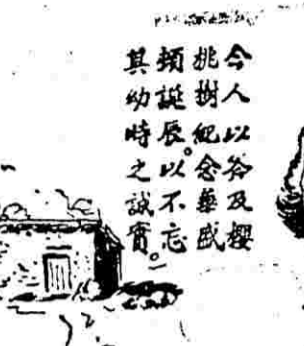 今人以斧及櫻
桃樹紀念華盛
頓誕辰。以不忘
其幼時之誠實。